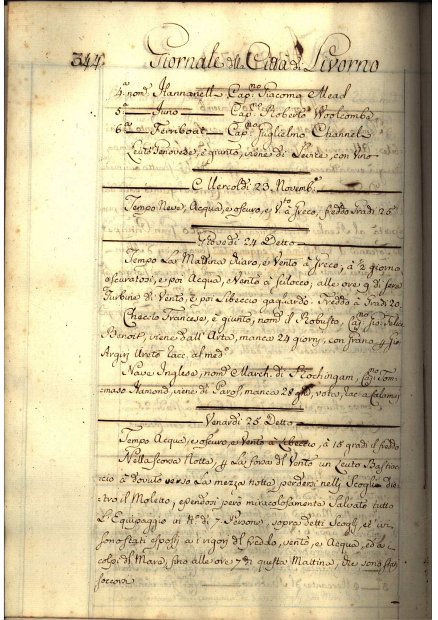 344. Giornale della Città di Livorno
4.ª nom. Hannanell Cap.no Giacomo Mead
5.ª Juno Cap. Roberto Woolcombe
6.ª Ferriboat Cap. Guglielmo Channel
Leuto Genovese, è giunto, viene di Levte, con Vino
Mercoldi 23 Novemb.e
Tempo Neve, Acqua, e oscuro, e V.to à Greco, freddo Gradi 25
Giovedi 24 Detto
Tempo La Mattina chiaro, e Vento à Greco, à ½ giorno
oscuratosi, e poi Acqua, e Vento à Scilocco, alle ore 9 di sera
Turbine di Vento, e poi Libeccio gagliardo. Freddo à Gradi 20
Checcio Francese, è giunto, nom. il Robusto, Cap.no Gio: Felice
Benoit, viene dall'Arta, manca 24 giorni, con Grano
Argiri Ureto racc. al med.o
Nave Inglese, nom. March. di Rochingam, Cap.no Tom-
maso Hamond, viene di manca 28 vota, rac. a
Venardi 25 Detto
Tempo Acqua, e oscuro, e Vento à Libeccio, à 15 gradi il freddo
Nella scorsa Notte, la forza del Vento un Leuto
à dovuto verso La mezza notte perdersi nelli Scogli die-
tro il Moletto, essendosi però miracolosamente Salvato tutto
L'Equipaggio in N.o di 7 Persone, sopra detti Scogli, et ivi
sono stati esposti a i rigori del freddo, vento, e Acqua, ed a
colpi di Mare, fino alle ore 7 di questa Mattina, che sono stati
soccorsi